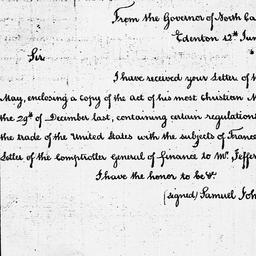 From the Governor of North Ca
Edenton 12th Jun
Sir
I have received your Letter of th
May, enclosing a Copy of the act of his most Christian M
the 29th of December last, containing certain regulation
the trade of the United States with the subjects of France
Letter of the Comptroller General of finance to Mr. Jeffer
I have the honor to be &c.
(signed) Samuel Joh